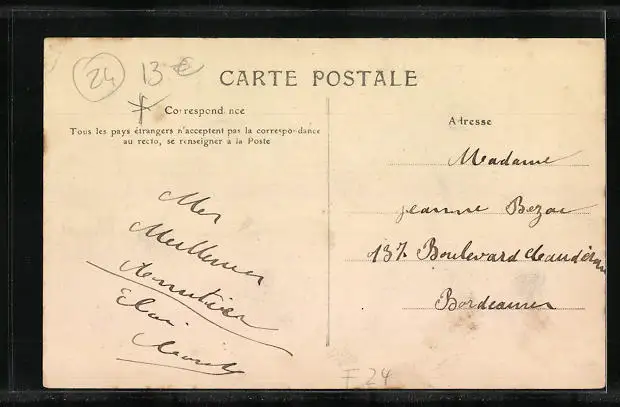 24 13 €
CARTE POSTALE
Correspondance
Tous les pays étrangers n'acceptent pas la correspondance
au recto, se renseigner à la Poste
Adresse
Madame
Jeanne Bezac
137 Boulevard Caudéran
Bordeaux
Mes
Meilleures
F 24